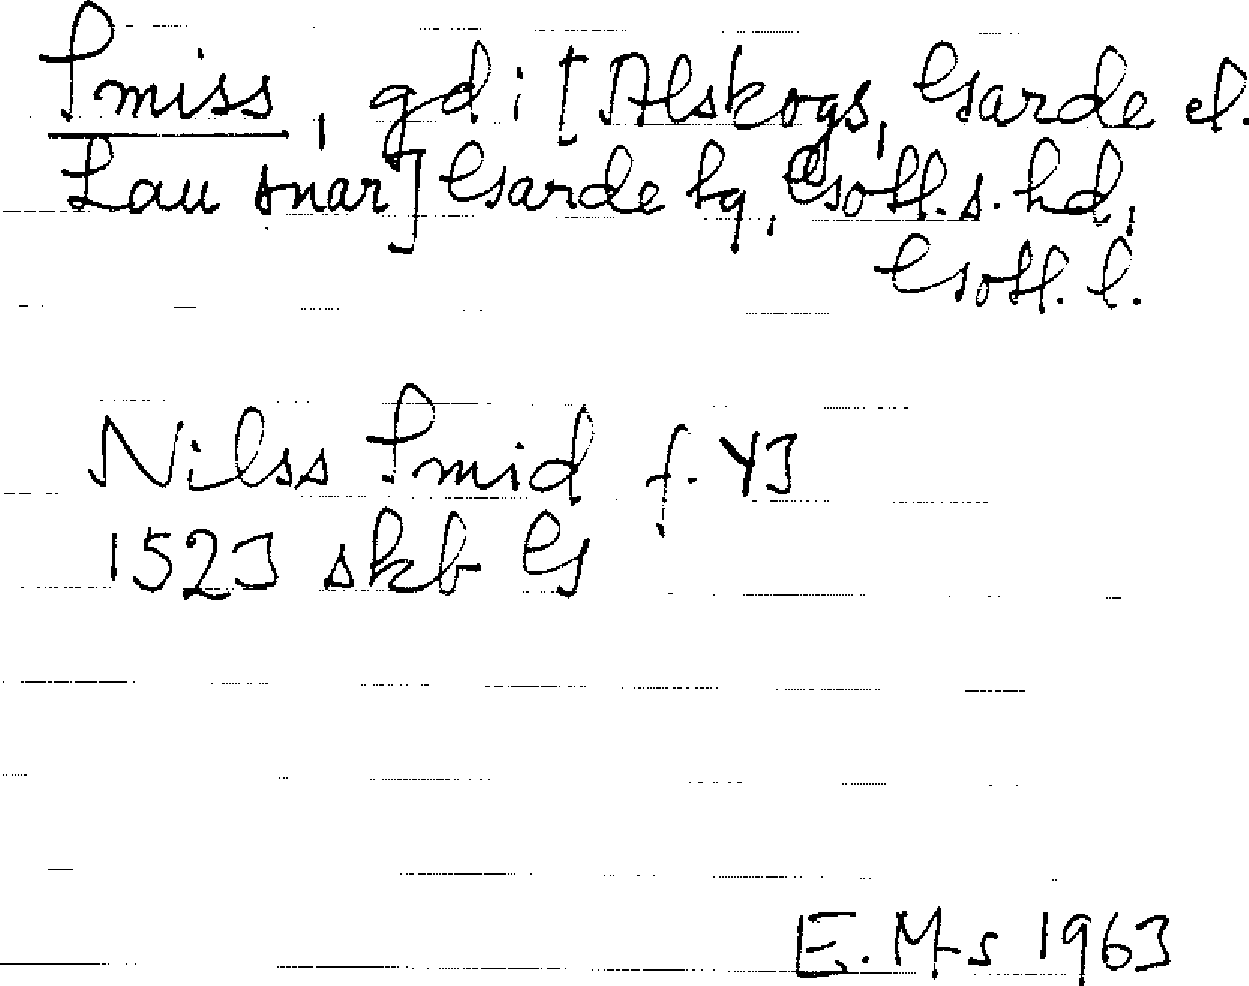 Smiss, gd i [Alskogs, Garde el.
Lau snar] Garde tg, Gotl. s. hd,
Gotl. l.
Nilss Smid f. 43
1523 skb G
E. M-s 1963